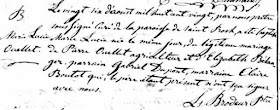 Le vingt six d'aout mil huit cent vingt, par nous prêtre
sous signé Curé de la paroisse de Saint Roch, a été baptisé
Marie Lucie née le même jour, du légitime mariage
de Pierre Ouellet agriculteur et d'Elizabeth
Ouellet. parrain Gabriel marraine Claire
Boutot qui, le père étant présent n'ont su signer
avec nous.
L. Brodeur Ptre